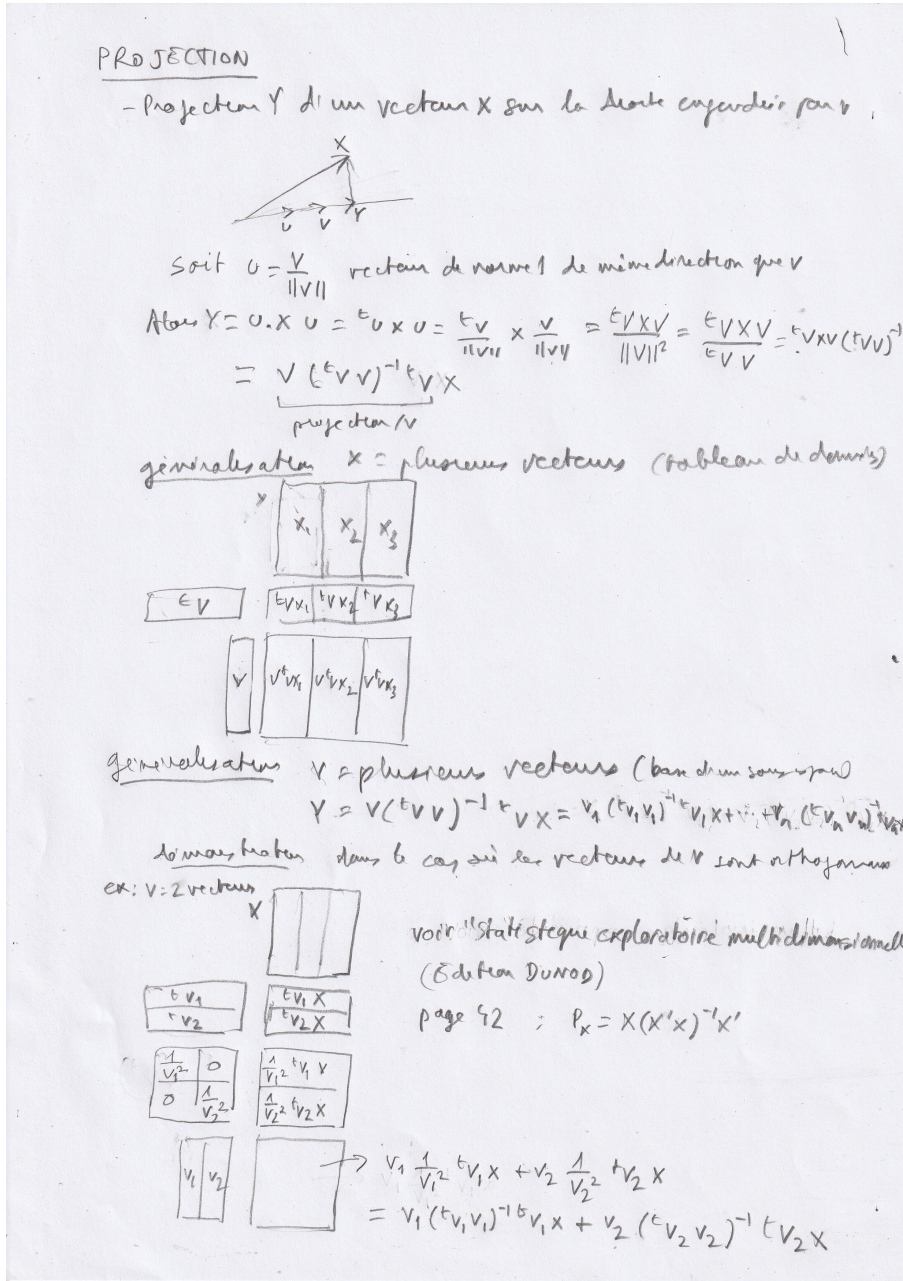 PROJECTION
- Projection Y d'un vecteur X sur la droite engendrée par v.
X
U V Y
soit U = V/||V|| vecteur de norme 1 de même direction que V
Alors Y = U.X U = ᵗU X U = ᵗV/||V|| X V/||V|| = ᵗVXV/||V||² = ᵗVXV/ᵗVV = ᵗVXV(ᵗVV)⁻¹
= V (ᵗVV)⁻¹ ᵗV X
projection/V
généralisation X = plusieurs vecteurs (tableau de données)
X
X₁ X₂ X₃
ᵗV ᵗVX₁ ᵗVX₂ ᵗVX₃
V VᵗVX₁ VᵗVX₂ VᵗVX₃
généralisation V = plusieurs vecteurs (base d'un sous espace)
Y = V(ᵗVV)⁻¹ ᵗVX = V₁(ᵗV₁V₁)⁻¹ ᵗV₁X + ... + Vₙ(ᵗVₙVₙ)⁻¹ ᵗVₙX
démonstration dans le cas où les vecteurs de V sont orthogonaux
ex: V = 2 vecteurs
X
voir "Statistique exploratoire multidimensionnelle
(Edition DUNOD)
page 42 ; Pₓ = X(X'X)⁻¹X'
ᵗV₁ ᵗV₁X
ᵗV₂ ᵗV₂X
1/V₁² 0 1/V₁² ᵗV₁X
0 1/V₂² 1/V₂² ᵗV₂X
V₁ V₂ → V₁ 1/V₁² ᵗV₁X + V₂ 1/V₂² ᵗV₂X
= V₁(ᵗV₁V₁)⁻¹ ᵗV₁X + V₂(ᵗV₂V₂)⁻¹ ᵗV₂X